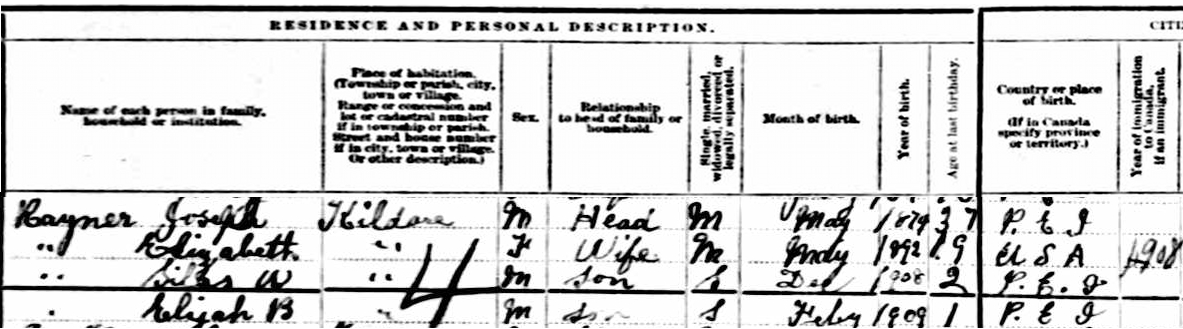 RESIDENCE AND PERSONAL DESCRIPTION. CITI
Name of each person in family, household or institution.
Place of habitation. (Township or parish, city, town or village. Range or concession and lot or cadastral number if in township or parish. Street and house number if in city, town or village. Or other description.)
Sex.
Relationship to head of family or household.
Single, married, widowed, divorced or legally separated.
Month of birth.
Year of birth.
Age at last birthday.
Country or place of birth. (If in Canada specify province or territory.)
Year of immigration to Canada, if an immigrant.
Rayner Joseph Kildare M Head M May 1874 37 P. E I
" Elizabeth " F Wife M May 1892 19 U S A 1908
" Silas W " 4 M Son S Dec 1908 2 P. E. I
" Elijah B " M Son S Feby 1909 1 P. E I